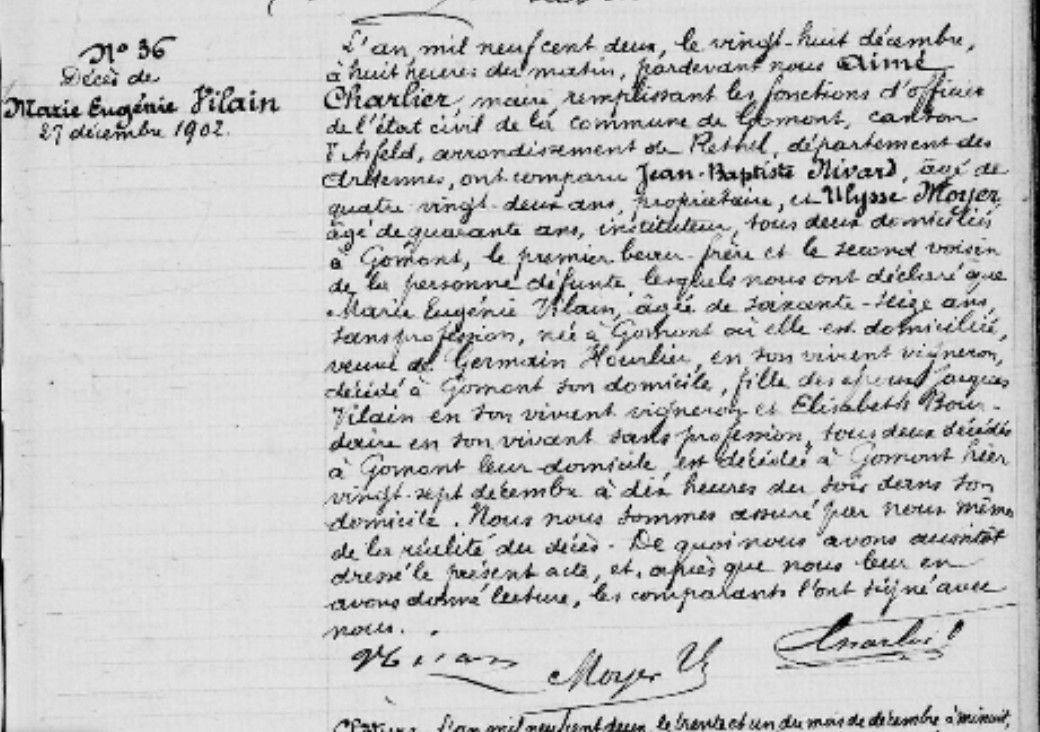 N° 36
Décès de
Marie Eugénie Vilain
27 décembre 1902.
L'an mil neuf cent deux, le vingt-huit décembre,
à huit heures du matin, pardevant nous Aimé
Charlier, maire, remplissant les fonctions d'officier
de l'état civil de la commune de Gomont, canton
d'Asfeld, arrondissement de Rethel, département des
Ardennes, ont comparu Jean-Baptiste Nivard, âgé de
quatre vingt-deux ans, propriétaire, et Ulysse Moyer,
âgé de quarante ans, instituteur, tous deux domiciliés
à Gomont, le premier beau-frère et le second voisin
de la personne défunte lesquels nous ont déclaré que
Marie Eugénie Vilain, âgée de soixante-seize ans,
sans profession, née à Gomont où elle est domiciliée,
veuve de Germain Hourlier en son vivant vigneron,
décédé à Gomont son domicile, fille des époux Jacques
Vilain en son vivant vigneron et Elisabeth Bour-
daire en son vivant sans profession, tous deux décédés
à Gomont leur domicile, est décédée à Gomont hier
vingt-sept décembre à dix heures du soir dans son
domicile. Nous nous sommes assuré par nous même
de la réalité du décès. De quoi nous avons aussitôt
dressé le présent acte, et, après que nous leur en
avons donné lecture, les comparants l'ont signé avec
nous.
Moyer U
Charlier
L'an mil neuf cent deux, le trente et un du mois de décembre à minuit,